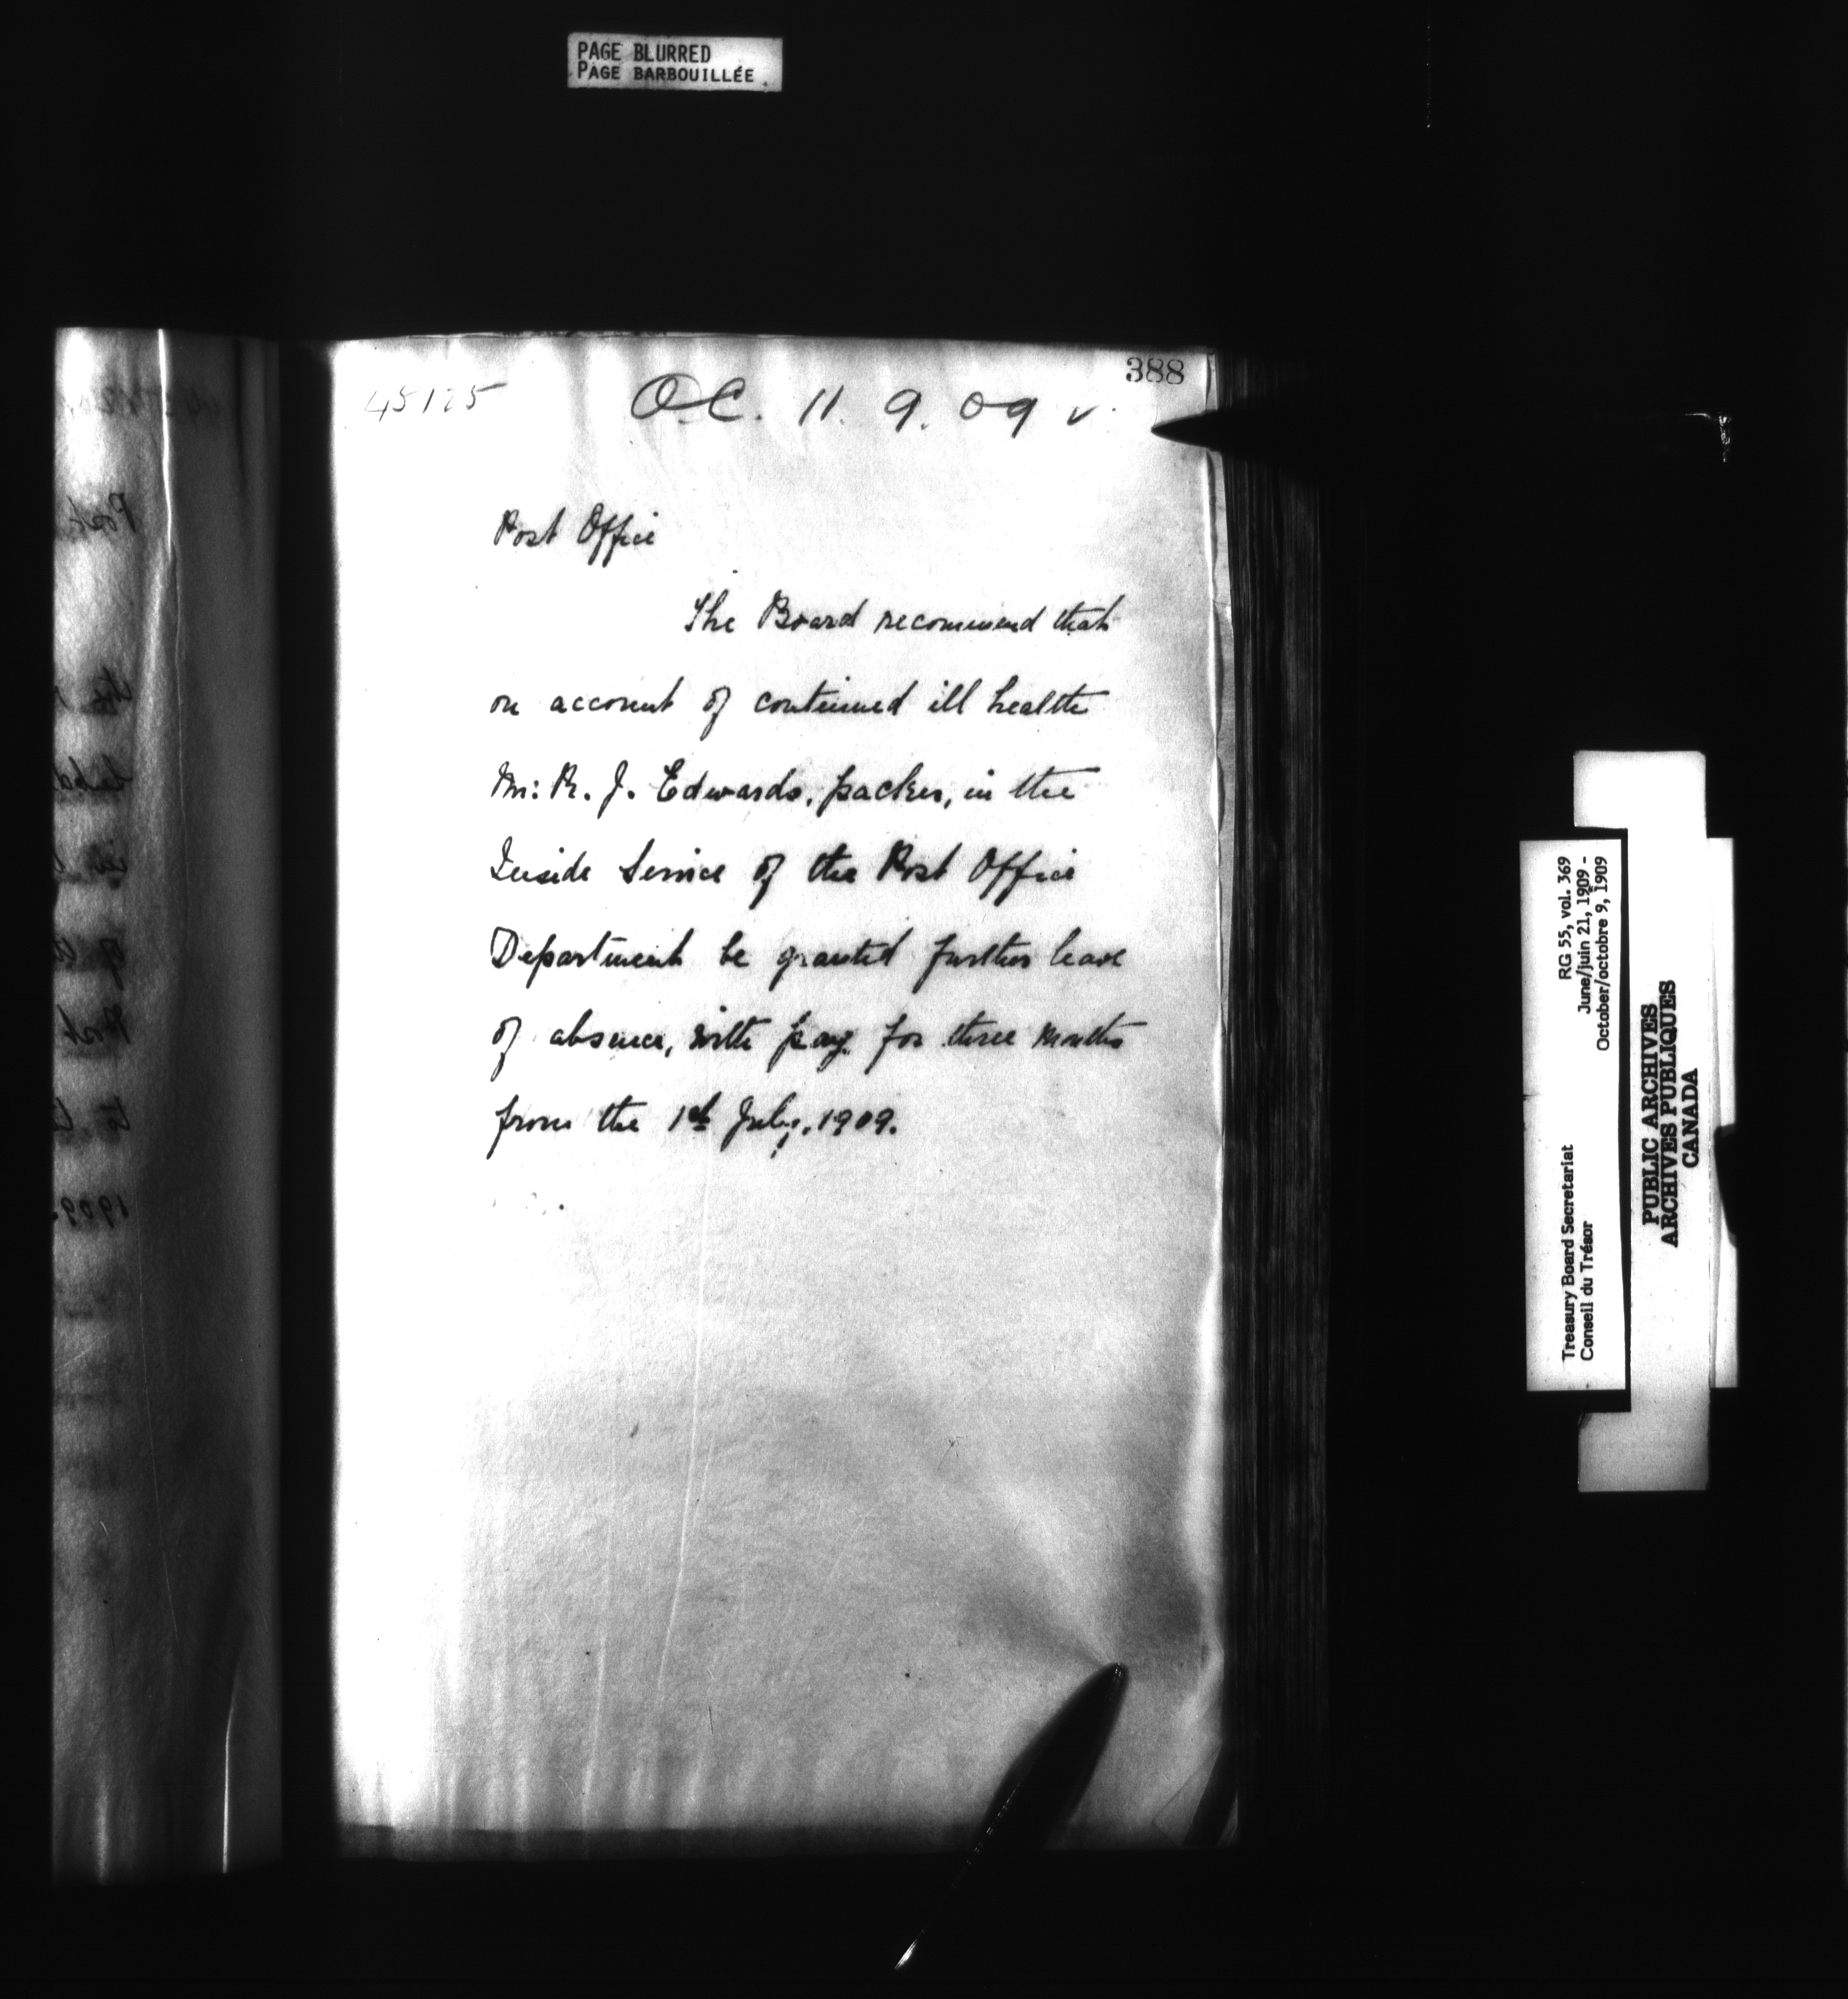 PAGE BLURRED
PAGE BARBOUILLÉE
388
45125
O.C. 11. 9. 09 v.
Post Office
The Board recommend that
on account of continued ill health
Mr: R. J. Edwards, packer, in the
Inside Service of the Post Office
Department be granted further leave
of absence, with pay for three months
from the 1st July, 1909.
RG 55, vol. 369
June/juin 21, 1909 -
October/octobre 9, 1909
Treasury Board Secretariat
Conseil du Trésor
PUBLIC ARCHIVES
ARCHIVES PUBLIQUES
CANADA